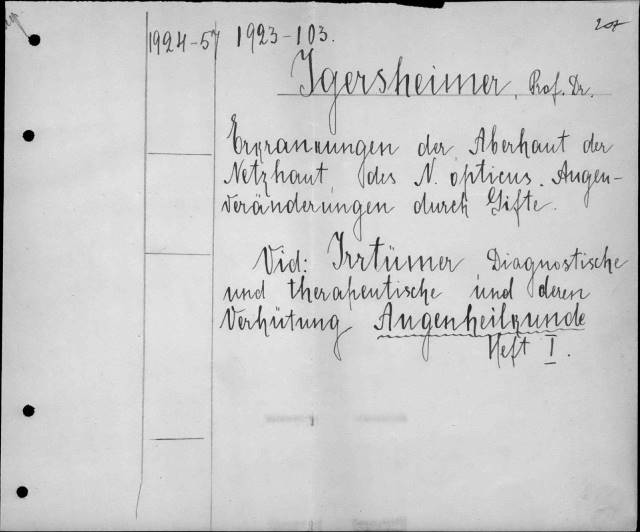 1924-57 1923-103.
Igersheimer, Prof. Dr.
Erqranqungen der Aberhaut der
Netzhaut, des N. opticus. Augen-
veränderungen durch Gifte.
Vid: Irrtümer, Diagnostische
und therapeutische und deren
Verhütung Augenheilqunde
Heft I.